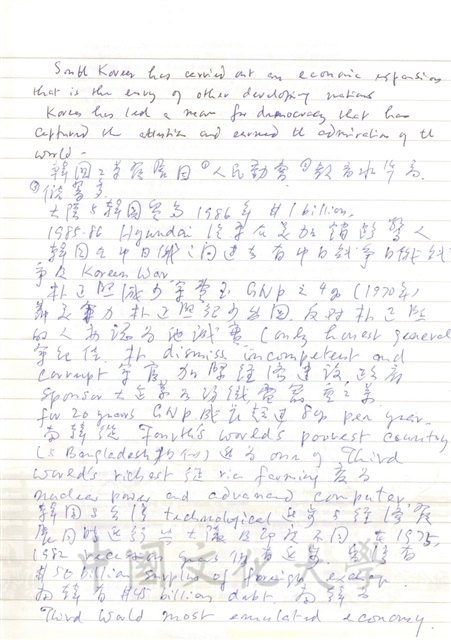 South Korea has carried out an economic expansion
that is the envy of other developing nations
Korea has led a move for democracy that has
captured the attention and earned the admiration of the
world.
韓國工業發展因 ①人民勤奮 ②教育水準高
③儲蓄多
大陸與韓國貿易 1986年 $1 billion.
1985-86 Hyundai 汽車在美加銷路驚人
韓國在中日俄之間過去有中日戰爭日俄戰
爭及 Korean War
朴正熙 GNP 之 4% (1970年)
朴正熙 反對朴正熙
的人亦認為他誠實 (only honest general
朴 dismiss incompetent and
corrupt 加強經濟建設, 政府
sponsor 大企業 鋼鐵電器重工業
for 20 years GNP 成長超過 8% per year.
南韓從 Fourth's world's poorest country
(與 Bangladesh 相似) 進為 one of Third
World's richest 從 rice farming 變為
nuclear power and advanced computer
韓國與台灣 technological 進步與經濟發
展同時進行 與大陸及印度不同. 在 1975,
1982 recession years 仍有進步. 台灣有
$50 billion surplus of foreign exchange
南韓有 $45 billion debt 南韓為
Third World most emulated economy.
中國文化大學